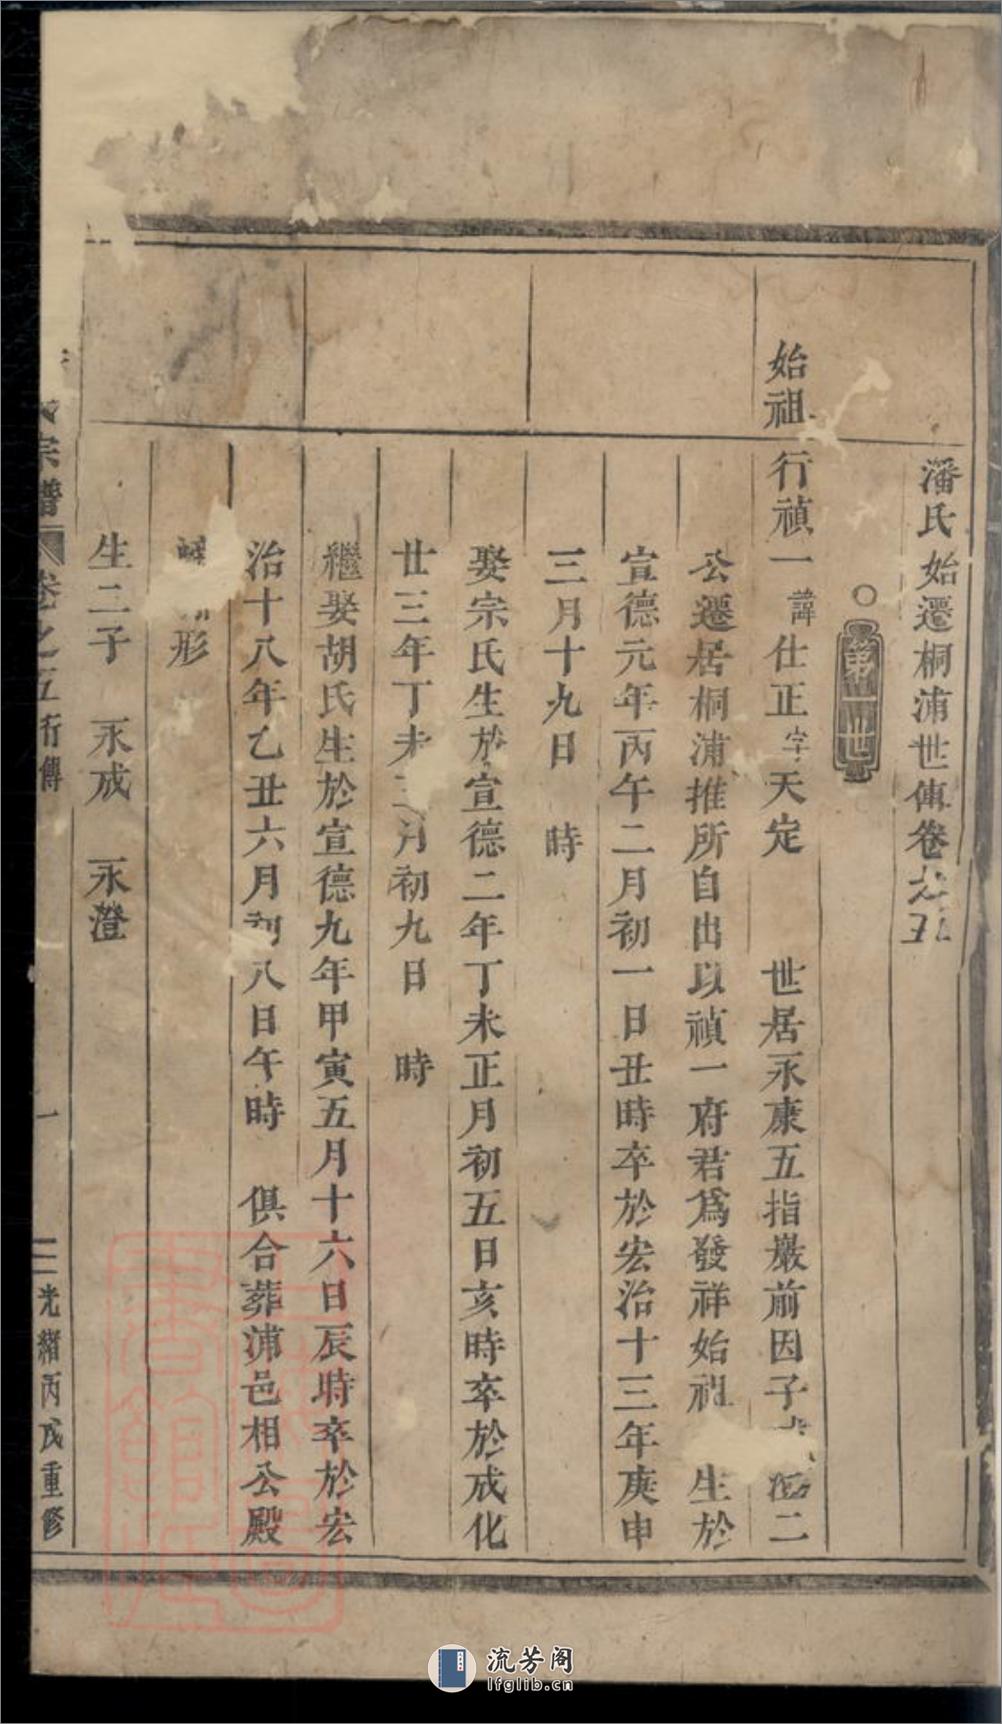 潘氏始遷桐浦世傳卷之五
第一世
始祖 行禎一 諱仕正字天定 世居永康五指巖前因子 二
公遷居桐浦推所自出以禎一府君爲發祥始祖 生於
宣德元年丙午二月初一日丑時卒於宏治十三年庚申
三月十九日 時
娶宗氏生於宣德二年丁未正月初五日亥時卒於成化
廿三年丁未 月初九日 時
繼娶胡氏生於宣德九年甲寅五月十六日辰時卒於宏
治十八年乙丑六月初八日午時 俱合葬浦邑相公殿
形
生二子 永戒 永澄
氏宗譜 卷之五行傳 一 光緒丙戌重修
流芳阁
lfglib.cn